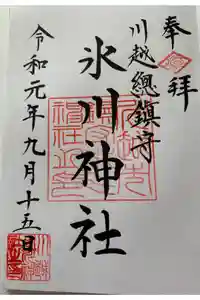 奉拝
川越總鎮守
氷川神社
令和元年九月十五日